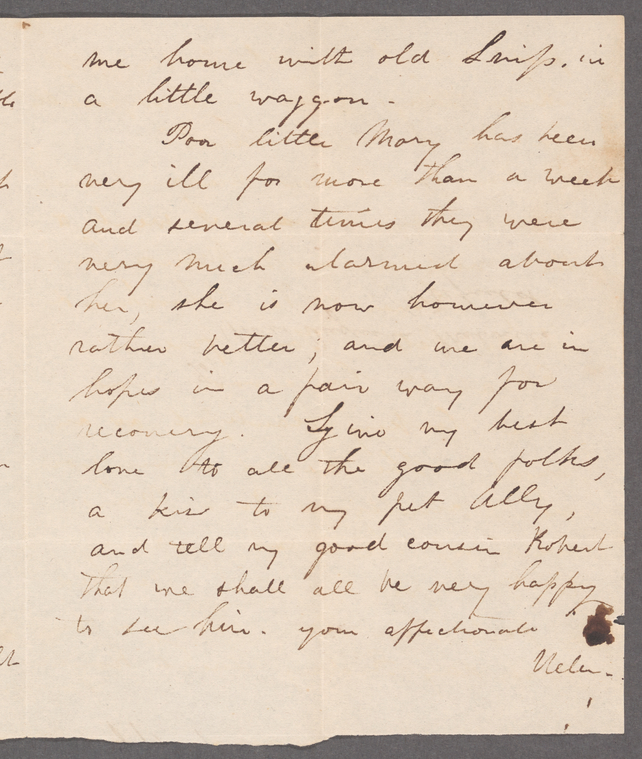 me home with old Snip. in
a little waggon -
Poor little Mary has been
very ill for more than a week
and several times they were
very much alarmed about
her, she is now however
rather better; and we are in
hopes in a fair way for
recovery. Give my best
love to all the good folks,
a kiss to my pet Ally,
and tell my good cousin Robert
that we shall all be very happy
to see him. your affectionate
Helen -